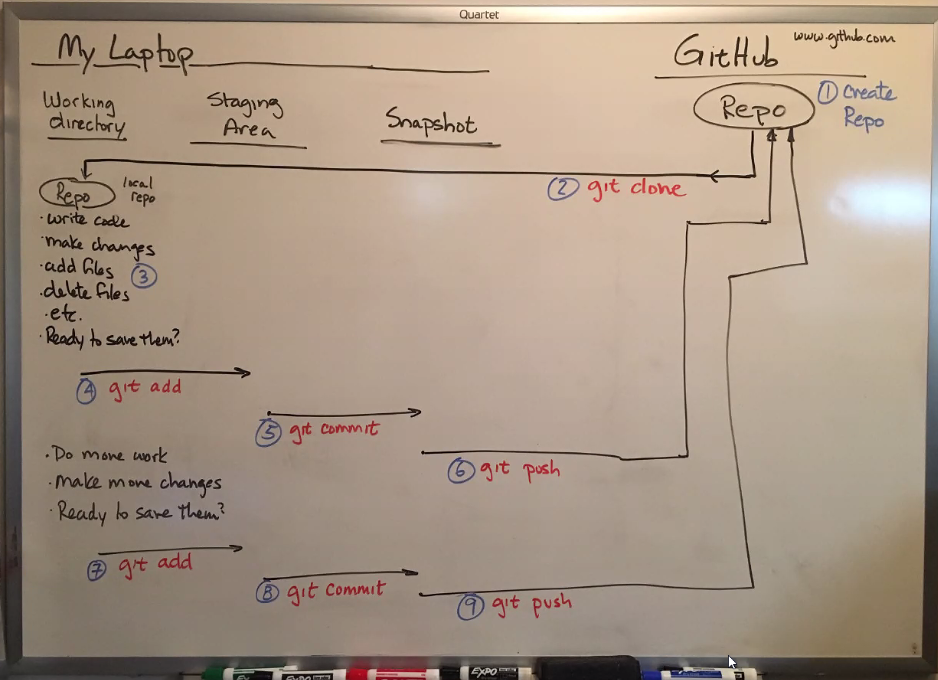 Quartet
My Laptop
GitHub
www.github.com
Repo
1 Create
Repo
Working
directory
Staging
Area
Snapshot
2 git clone
Repo
local
repo
· write code
· make changes
· add files
3
· delete files
· etc.
· Ready to save them?
4 git add
5 git commit
6 git push
· Do more work
· Make more changes
· Ready to save them?
7 git add
8 git commit
9 git push
EXPO
EXPO